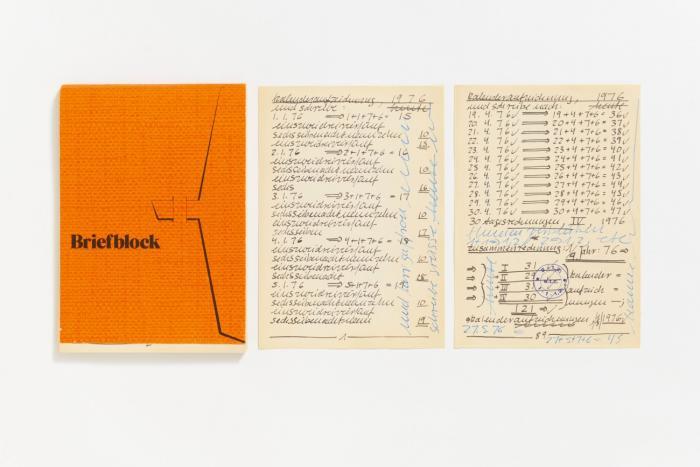 Briefblock
Kalenderaufzeichnung, 1976
und schreibe: heute
1.1.76 ⟹ 1+1+7+6= 15
einszweidreivierfünf
sechssiebenachtneunzehn 10
einszweidreivierfünf 15
2.1.76 ⟹ 2+1+7+6 = 16
einszweidreivierfünf
sechssiebenachtneunzehn 10
einszweidreivierfünf
sechs 16
3.1.76 ⟹ 3+1+7+6 = 17
einszweidreivierfünf
sechssiebenachtneunzehn 10
einszweidreivierfünf
sechssieben 17
4.1.76 ⟹ 4+1+7+6=
einszweidreivierfünf
sechssiebenachtneunzehn 10
einszweidreivierfünf
sechssiebenacht 18
5.1.76 ⟹ 5+1+7+6 = 19
einszweidreivierfünf
sechssiebenachtneunzehn 10
einszweidreivierfünf
sechssiebenachtneun 19
1
Kalenderaufzeichnungen, 1976
und schreibe nach: heute
19. 4. 76 ⟹ 19+4+7+6 = 36
20. 4. 76 ⟹ 20+4+7+6= 37
21. 4. 76 ⟹ 21+4+7+6= 38
22. 4. 76 ⟹ 22+4+7+6= 39
23. 4. 76 ⟹ 23+4+7+6= 40
24. 4. 76 ⟹ 24+4+7+6= 41
25. 4. 76 ⟹ 25+4+7+6= 42
26. 4. 76 ⟹ 26+4+7+6= 43
27. 4. 76 ⟹ 27+4+7+6= 44
28. 4. 76 ⟹ 28+4+7+6= 45
29. 4. 76 ⟹ 29+4+7+6= 46
30. 4. 76 ⟹ 30+4+7+6= 47
30 Tagsrechnungen, IV. 1976
Zusammenrechnung: Jahr: 76 =
I 31
II 29 kalender =
+ III 31 aufzeich =
+ IV 30 nungen
121
Kalenderaufzeichnungen 1976
27.5.76
89
27+5+7+6= 45